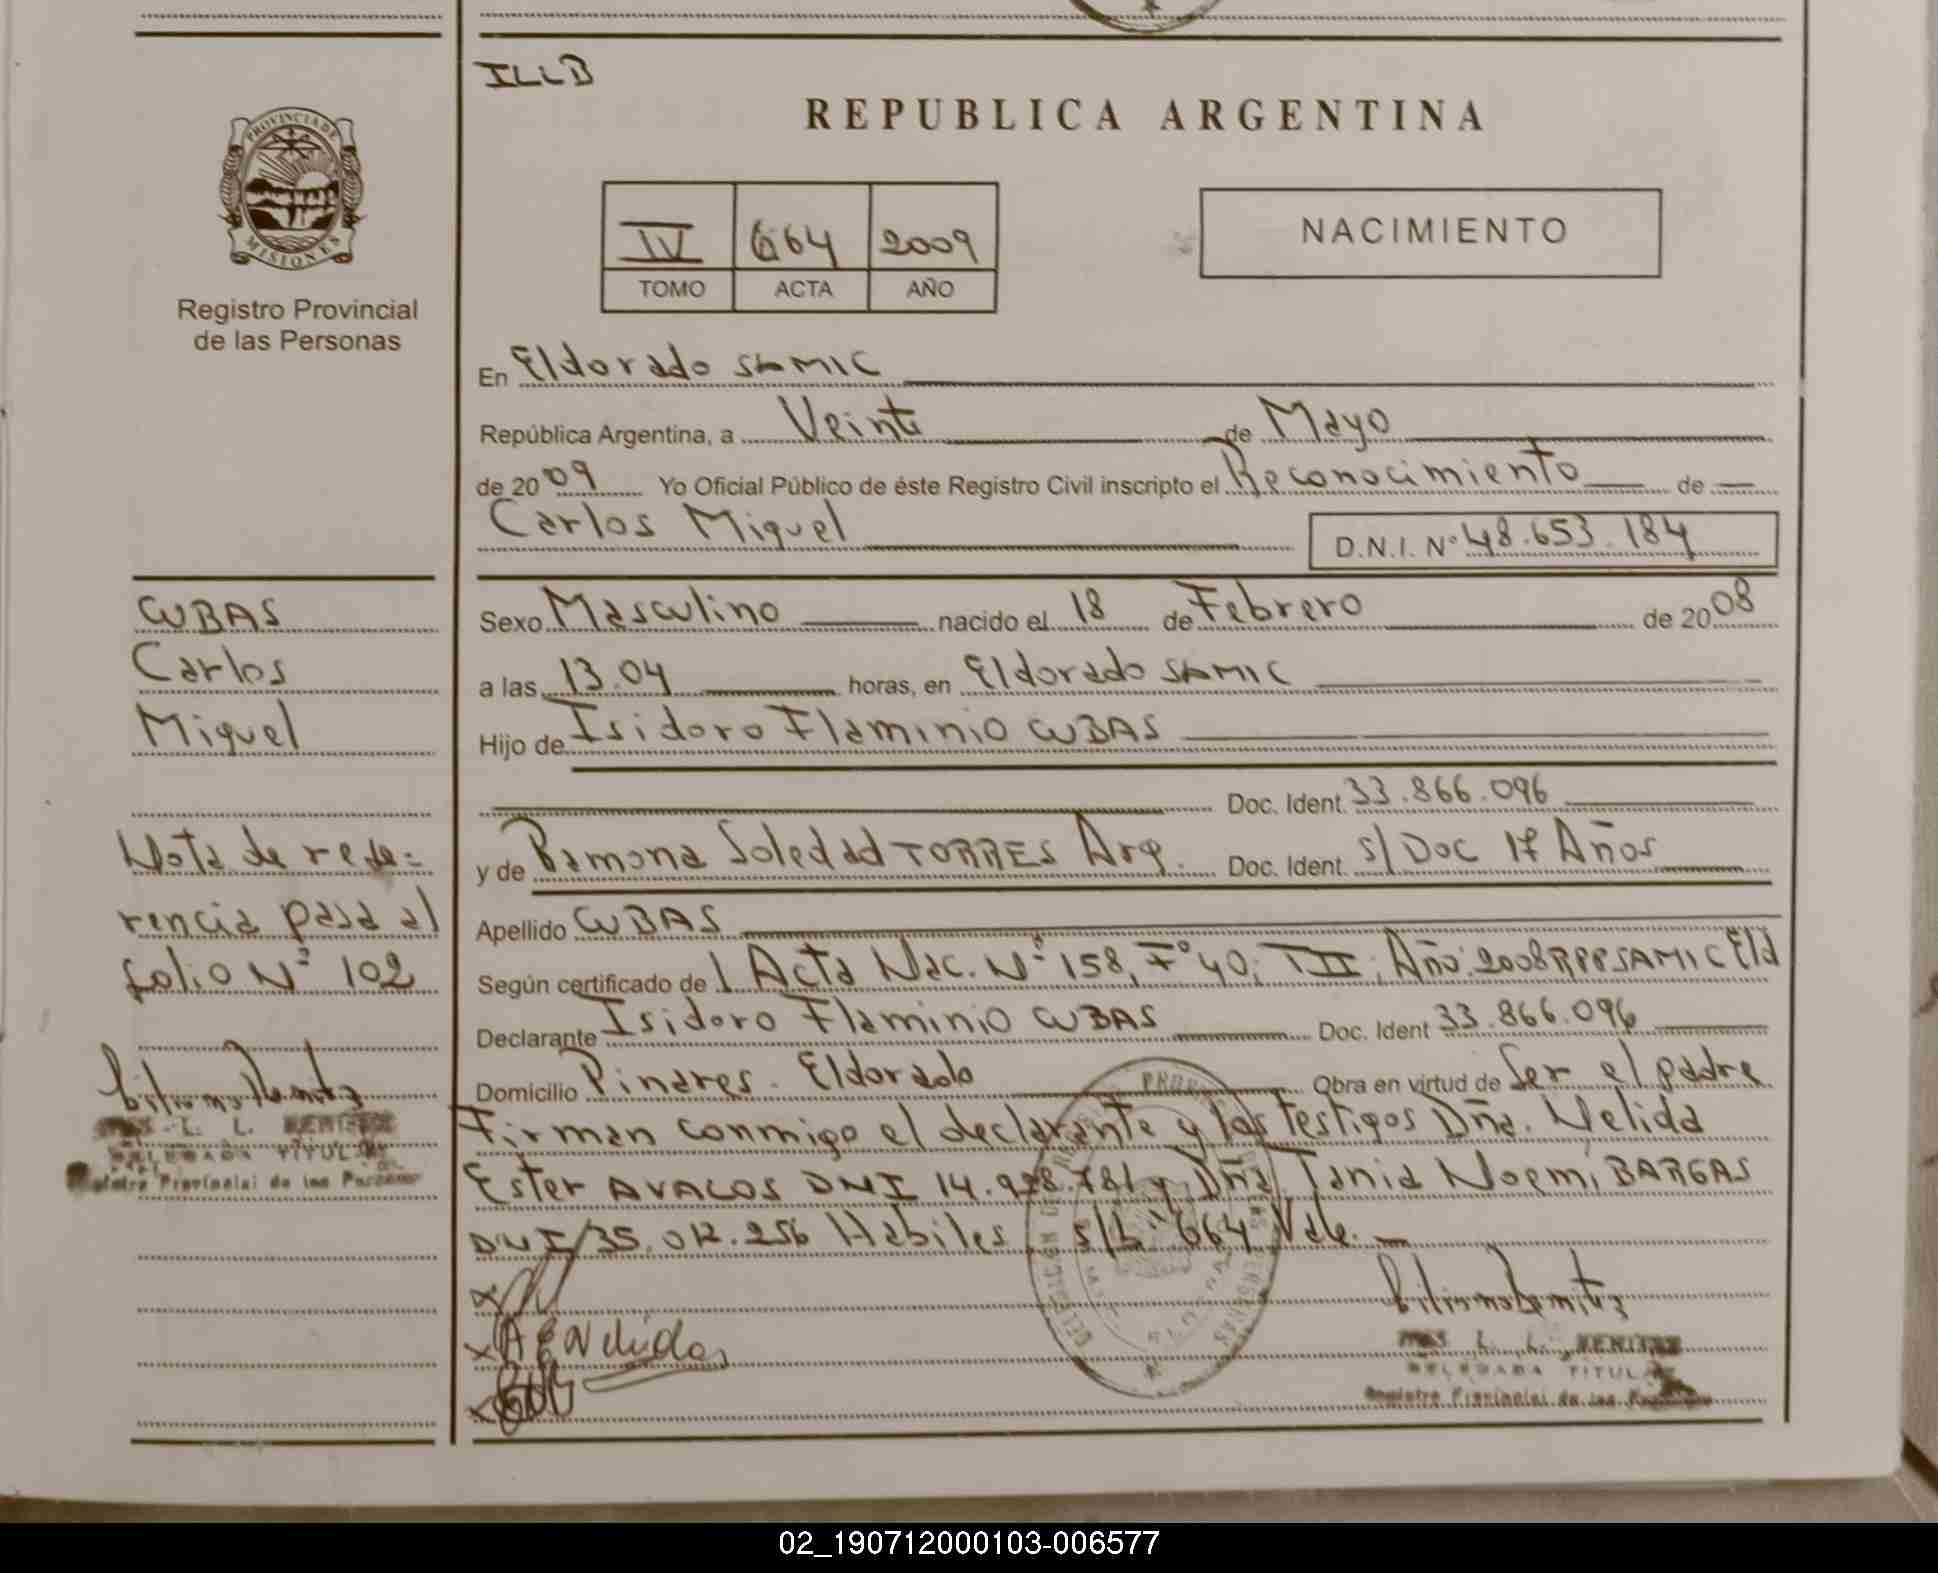 ILLB
REPUBLICA ARGENTINA
PROVINCIA DE
MISIONES
Registro Provincial
de las Personas
IV 664 2009
TOMO ACTA AÑO
NACIMIENTO
En Eldorado SAMIC
República Argentina, a Veinte de Mayo
de 2009 Yo Oficial Público de éste Registro Civil inscripto el Reconocimiento de
Carlos Miguel
D.N.I. Nº 48.653.184
CUBAS
Carlos
Miguel
Sexo Masculino nacido el 18 de Febrero de 2008
a las 13.04 horas, en Eldorado SAMIC
Hijo de Isidoro Flaminio CUBAS
Doc. Ident. 33.866.096
y de Ramona Soledad TORRES Arg. Doc. Ident. s/Doc 17 Años
Apellido CUBAS
Según certificado de 1 Acta Nac. Nº 158, Fº 40, TII, Año: 2008 RPP SAMIC Eld
Declarante Isidoro Flaminio CUBAS Doc. Ident 33.866.096
Domicilio Pinares. Eldorado Obra en virtud de Ser el padre
Firman conmigo el declarante y las testigos Dña. Nelida
Ester AVALOS DNI 14.928.781 y Dña Tania Noemi BARGAS
DNI 35.012.256 Habiles s/b: 664 Vale.
Nota de refe=
rencia pasa al
folio Nº 102
L. L.
DELEGADA TITULAR
Registro Provincial de las Personas
A E Nelida
L. L.
DELEGADA TITULAR
Registro Provincial de las Personas
02_190712000103-006577